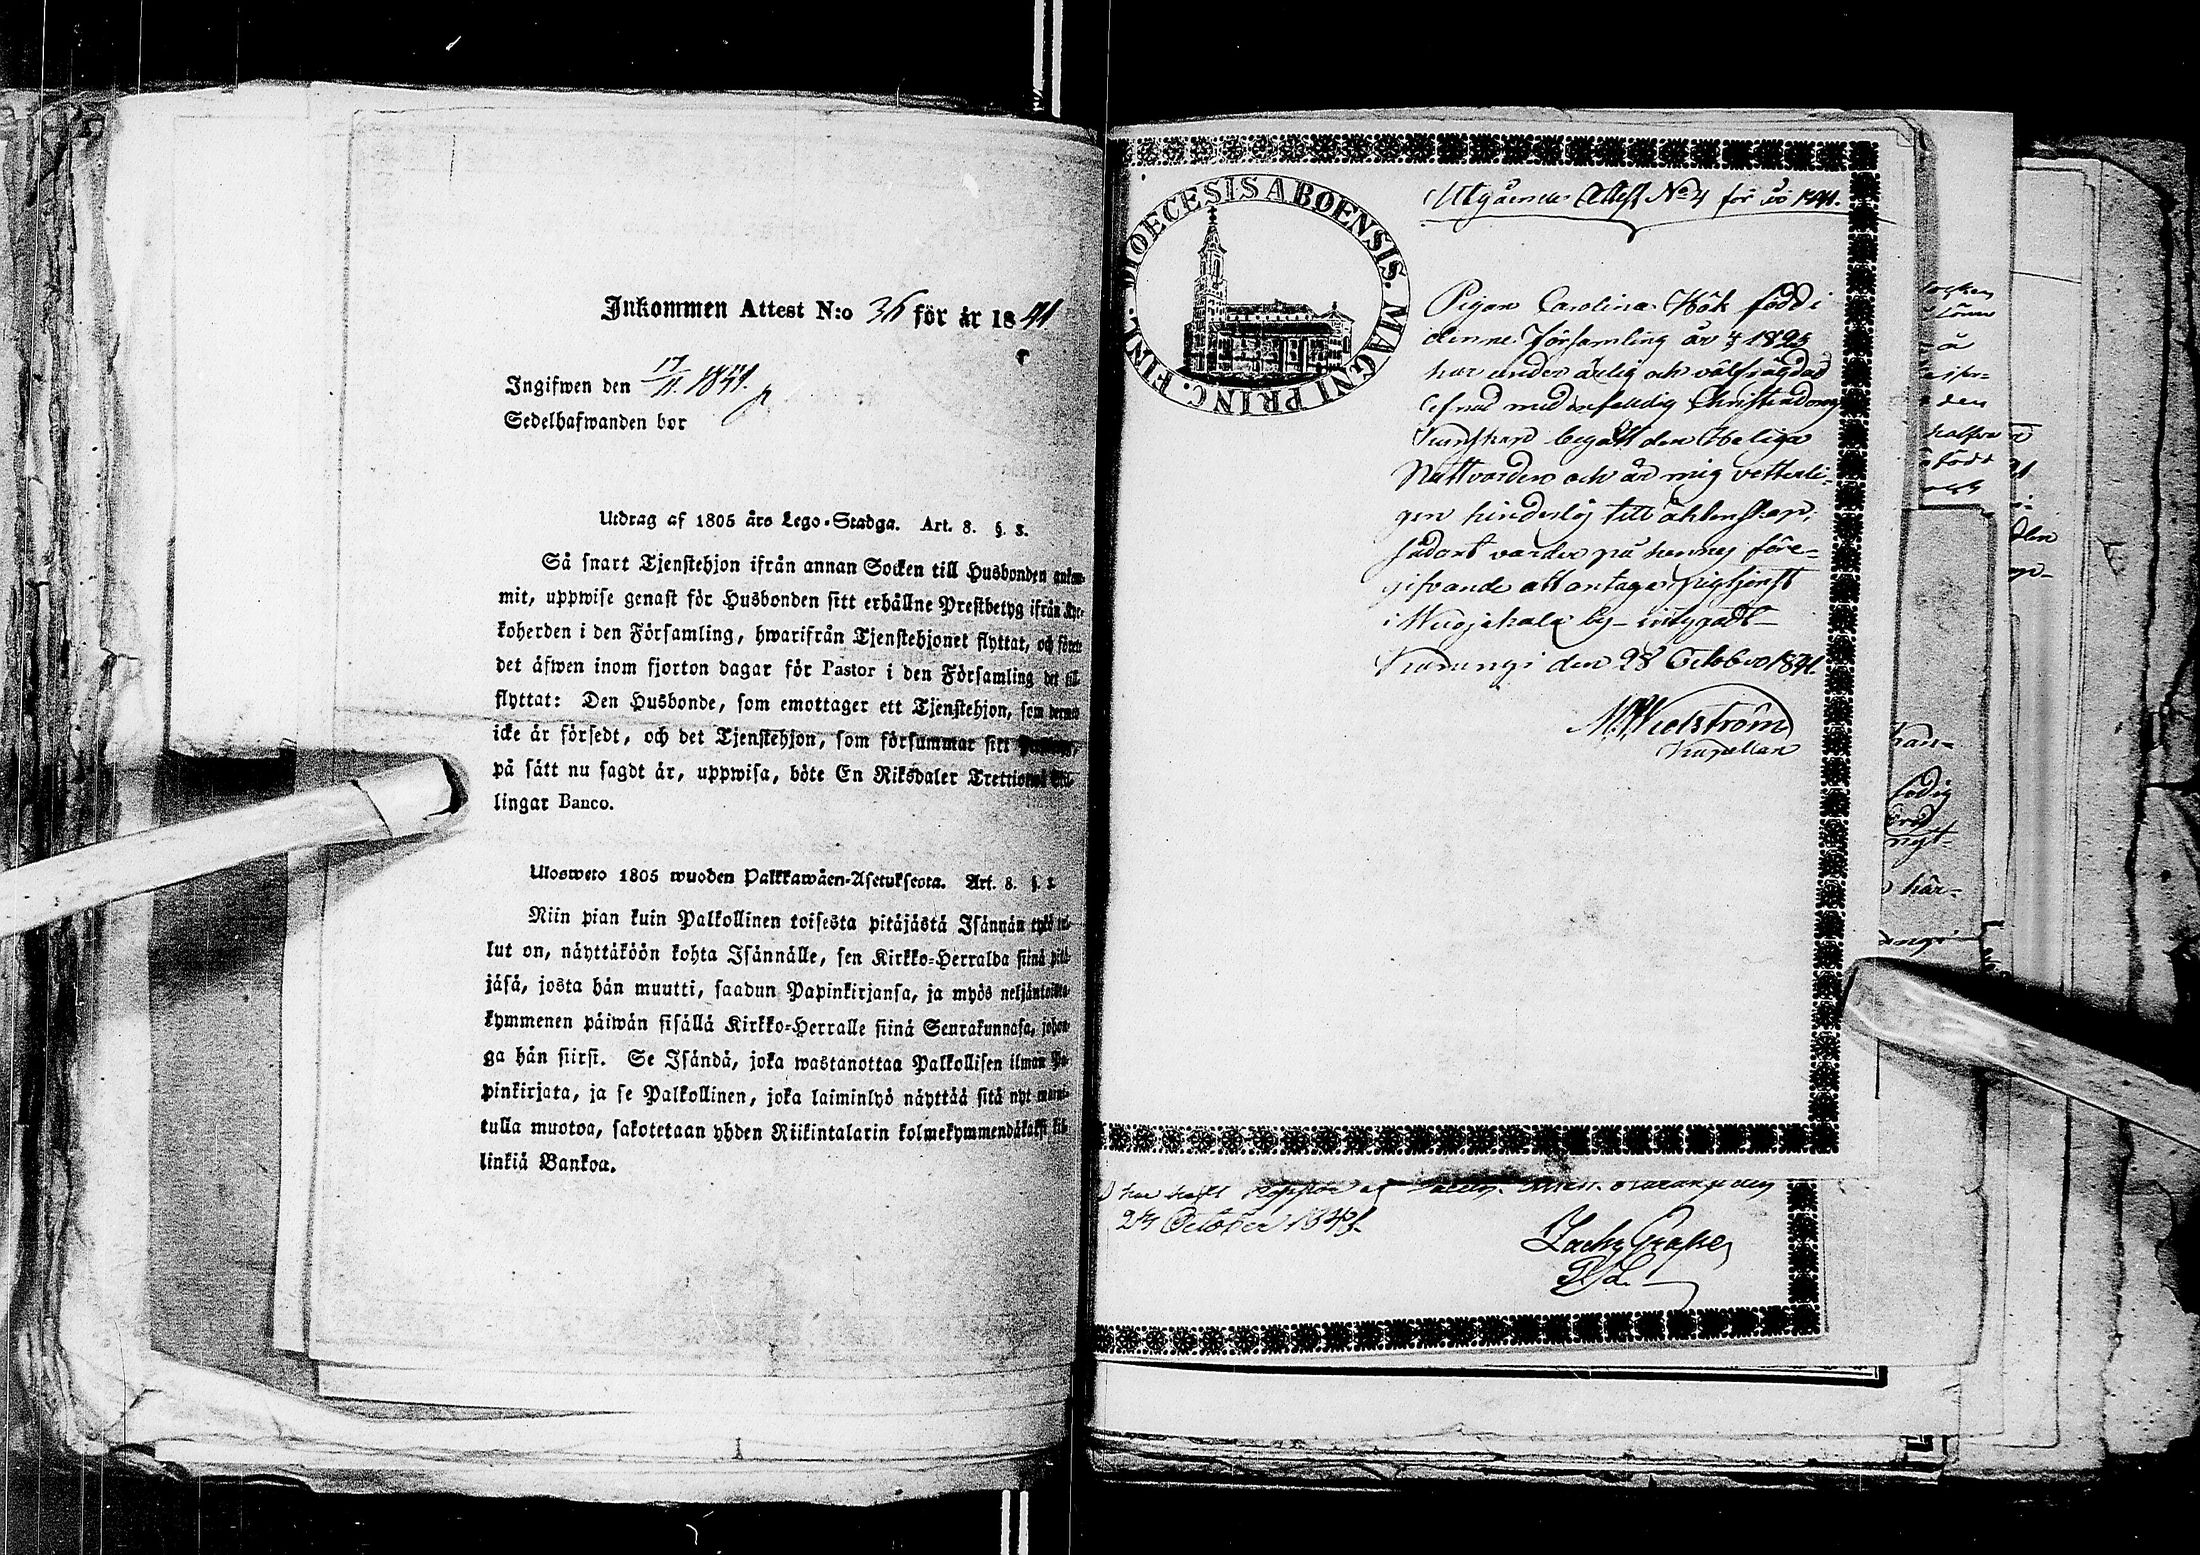 Inkommen Attest N:o 36 för år 1841
Ingifwen den 17/11 1841.
Sedelhafwanden bor
Utdrag af 1805 års Lego-Stadga. Art. 8. §. 3.
Så snart Tjenstehjon ifrån annan Socken till Husbonden ankom-
mit, uppwise genast för Husbonden sitt erhållne Prestbetyg ifrån Kyr-
koherden i den Församling, hwarifrån Tjenstehjonet flyttat, och förete
det äfwen inom fjorton dagar för Pastor i den Församling det till
flyttat: Den Husbonde, som emottager ett Tjenstehjon, som dermed
icke är försedt, och det Tjenstehjon, som försummar sitt
på sätt nu sagdt är, uppwisa, böte En Riksdaler Trettiotwå Skil-
lingar Banco.
Ulosweto 1805 wuoden Palkkawäen-Asetuksesta. Art. 8. §. 3.
Niin pian kuin Palkollinen toisesta pitäjästä Isännän työö tul-
lut on, näyttäköön kohta Isännälle, sen Kirkko-Herralda siinä pitä-
jäsä, josta hän muutti, saadun Papinkirjansa, ja myös neljäntoista-
kymmenen päiwän sisällä Kirkko-Herralle siinä Seurakunnasa, johon-
ga hän siirsi. Se Isändä, joka wastanottaa Palkollisen ilman Pa-
pinkirjata, ja se Palkollinen, joka laiminlyö näyttää sitä nyt maini-
tulla muotoa, sakotetaan yhden Riikintalarin kolmekymmendäkaksi kil-
linkiä Bankoa.
DIOECESIS ABOENSIS. MAGNI PRINC. FINL.
Utgående Attest No 4 för år 1841.
Pigan Carolina Hök född i
denne Församling år 1823
har under ärlig och välfrägdad
lefnad med enfaldig Christendoms
Kunskap begått den Heliga
Nattvarden och är mig vetterli-
gen hinderlös till äktenskap,
sådant varder på hennes före-
gifvande att antaga pigtjenst
i by intygadt
den 28 October 1841.
Kapellan
har haft koppor
October 1841.